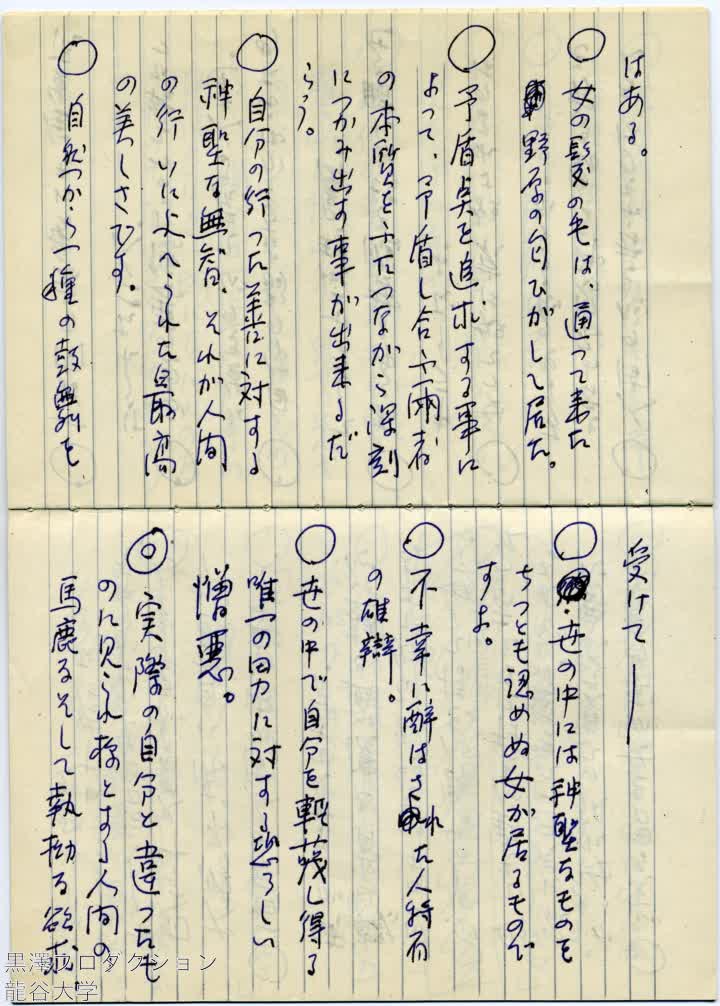 はある。
○ 女の髪の毛は、通って来た
野原の匂ひがして居た。
○ 矛盾点を追求する事に
よって、矛盾し合ふ両者
の本質をふたつながら深刻
につかみ出す事が出来るだ
らう。
○ 自分の行った善に対する
神聖な無智、それが人間
の行いに与へられた最高
の美しさです。
○ 自然から一種の鼓舞を
受けて―
○ 世の中には神聖なものを
ちっとも認めぬ女が居るもので
すよ。
○ 不幸に酔はされた人特有
の雄辯。
○ 世の中で自分を軽蔑し得る
唯一の男に対する恐ろしい
憎悪。
◎ 実際の自分と違ったも
のに見られ様とする人間の
馬鹿なそして執拗な欲求
黒澤プロダクション
龍谷大学